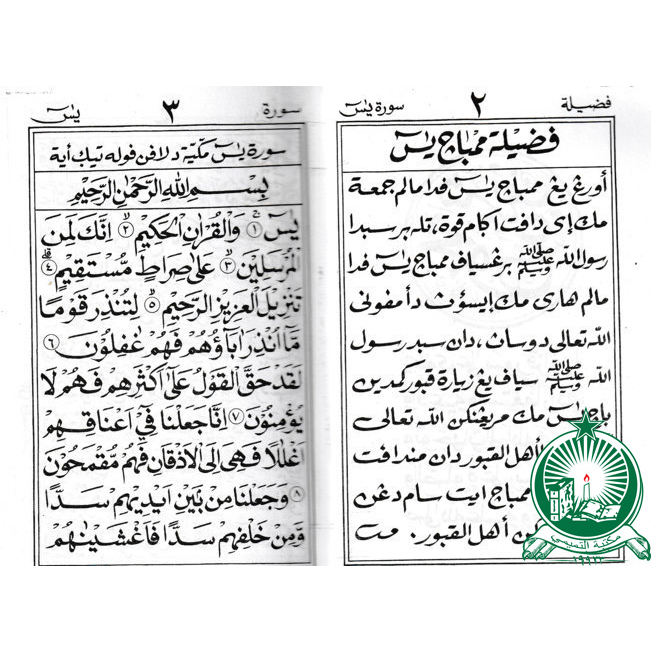 فضيلة ٢ سورة يٰسٓ
فضيلة ممباچ يٰسٓ
أورڠ يڠ ممباچ يٰسٓ فدا مالم جمعة
مك إى دافت اݢام قوة، تله برسبدا
رسول الله ﷺ برڠسياف ممباچ يٰسٓ فدا
مالم هارى مك إيسؤڽ دأمفونى
الله تعالى دوساڽ، دان سبد رسول
الله ﷺ سياف يڠ زيارة قبور كمدين
باچ يٰسٓ مك مريڠنكن الله تعالى
أهل القبور دان مندافت
ممباچ ايت سام دڠن
كن أهل القبور.
سورة ٣ يٰسٓ
سورة يٰسٓ مكية دلافن فوله تيݢ أية
بِسْمِ اللهِ الرَّحْمٰنِ الرَّحِيْمِ
يٰسٓ ۝١ وَالْقُرْاٰنِ الْحَكِيْمِ ۝٢ اِنَّكَ لَمِنَ
الْمُرْسَلِيْنَ ۝٣ عَلٰى صِرَاطٍ مُسْتَقِيْمٍ ۝٤
تَنْزِيْلَ الْعَزِيْزِ الرَّحِيْمِ ۝٥ لِتُنْذِرَ قَوْمًا
مَآ اُنْذِرَ اٰبَآؤُهُمْ فَهُمْ غٰفِلُوْنَ ۝٦
لَقَدْ حَقَّ الْقَوْلُ عَلٰٓى اَكْثَرِهِمْ فَهُمْ لَا
يُؤْمِنُوْنَ ۝٧ اِنَّا جَعَلْنَا فِيْٓ اَعْنَاقِهِمْ
اَغْلٰلًا فَهِيَ اِلَى الْاَذْقَانِ فَهُمْ مُقْمَحُوْنَ
۝٨ وَجَعَلْنَا مِنْ بَيْنِ اَيْدِيْهِمْ سَدًّا
وَّمِنْ خَلْفِهِمْ سَدًّا فَاَغْشَيْنٰهُمْ
مكتبة التميمي